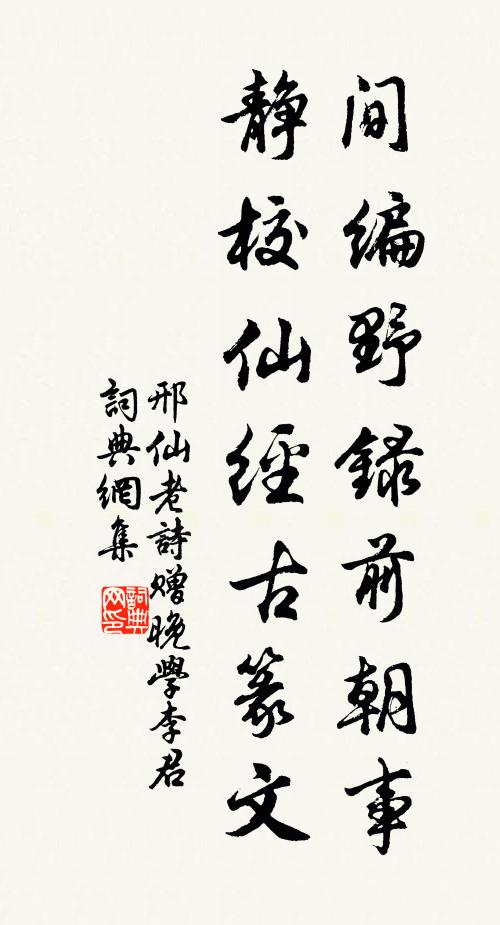 间编野録前朝事
静校仙經古篆文
邢仙老詩贈晚學李君
詞典網集
詞典网印